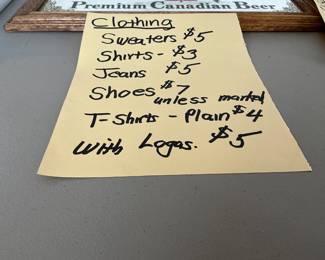 Premium Canadian Beer
Clothing
Sweaters $5
Shirts - $3
Jeans $5
Shoes $7
unless marked
T-Shirts - Plain $4
With Logos. $5